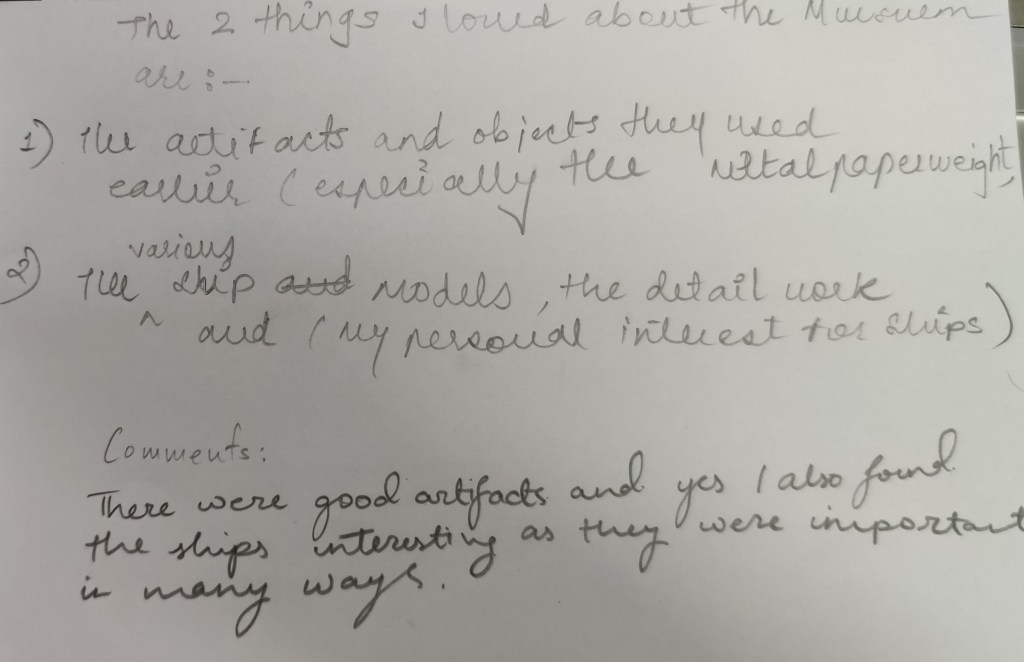 The 2 things I loved about the Muesuem
are :-
1) The artifacts and objects they used
earlier (especially the metal paperweight,
various
2) The ship and models, the detail work
^ and (my personal interest for ships)
Comments:
There were good artifacts and yes I also found
the ships interesting as they were important
in many ways.